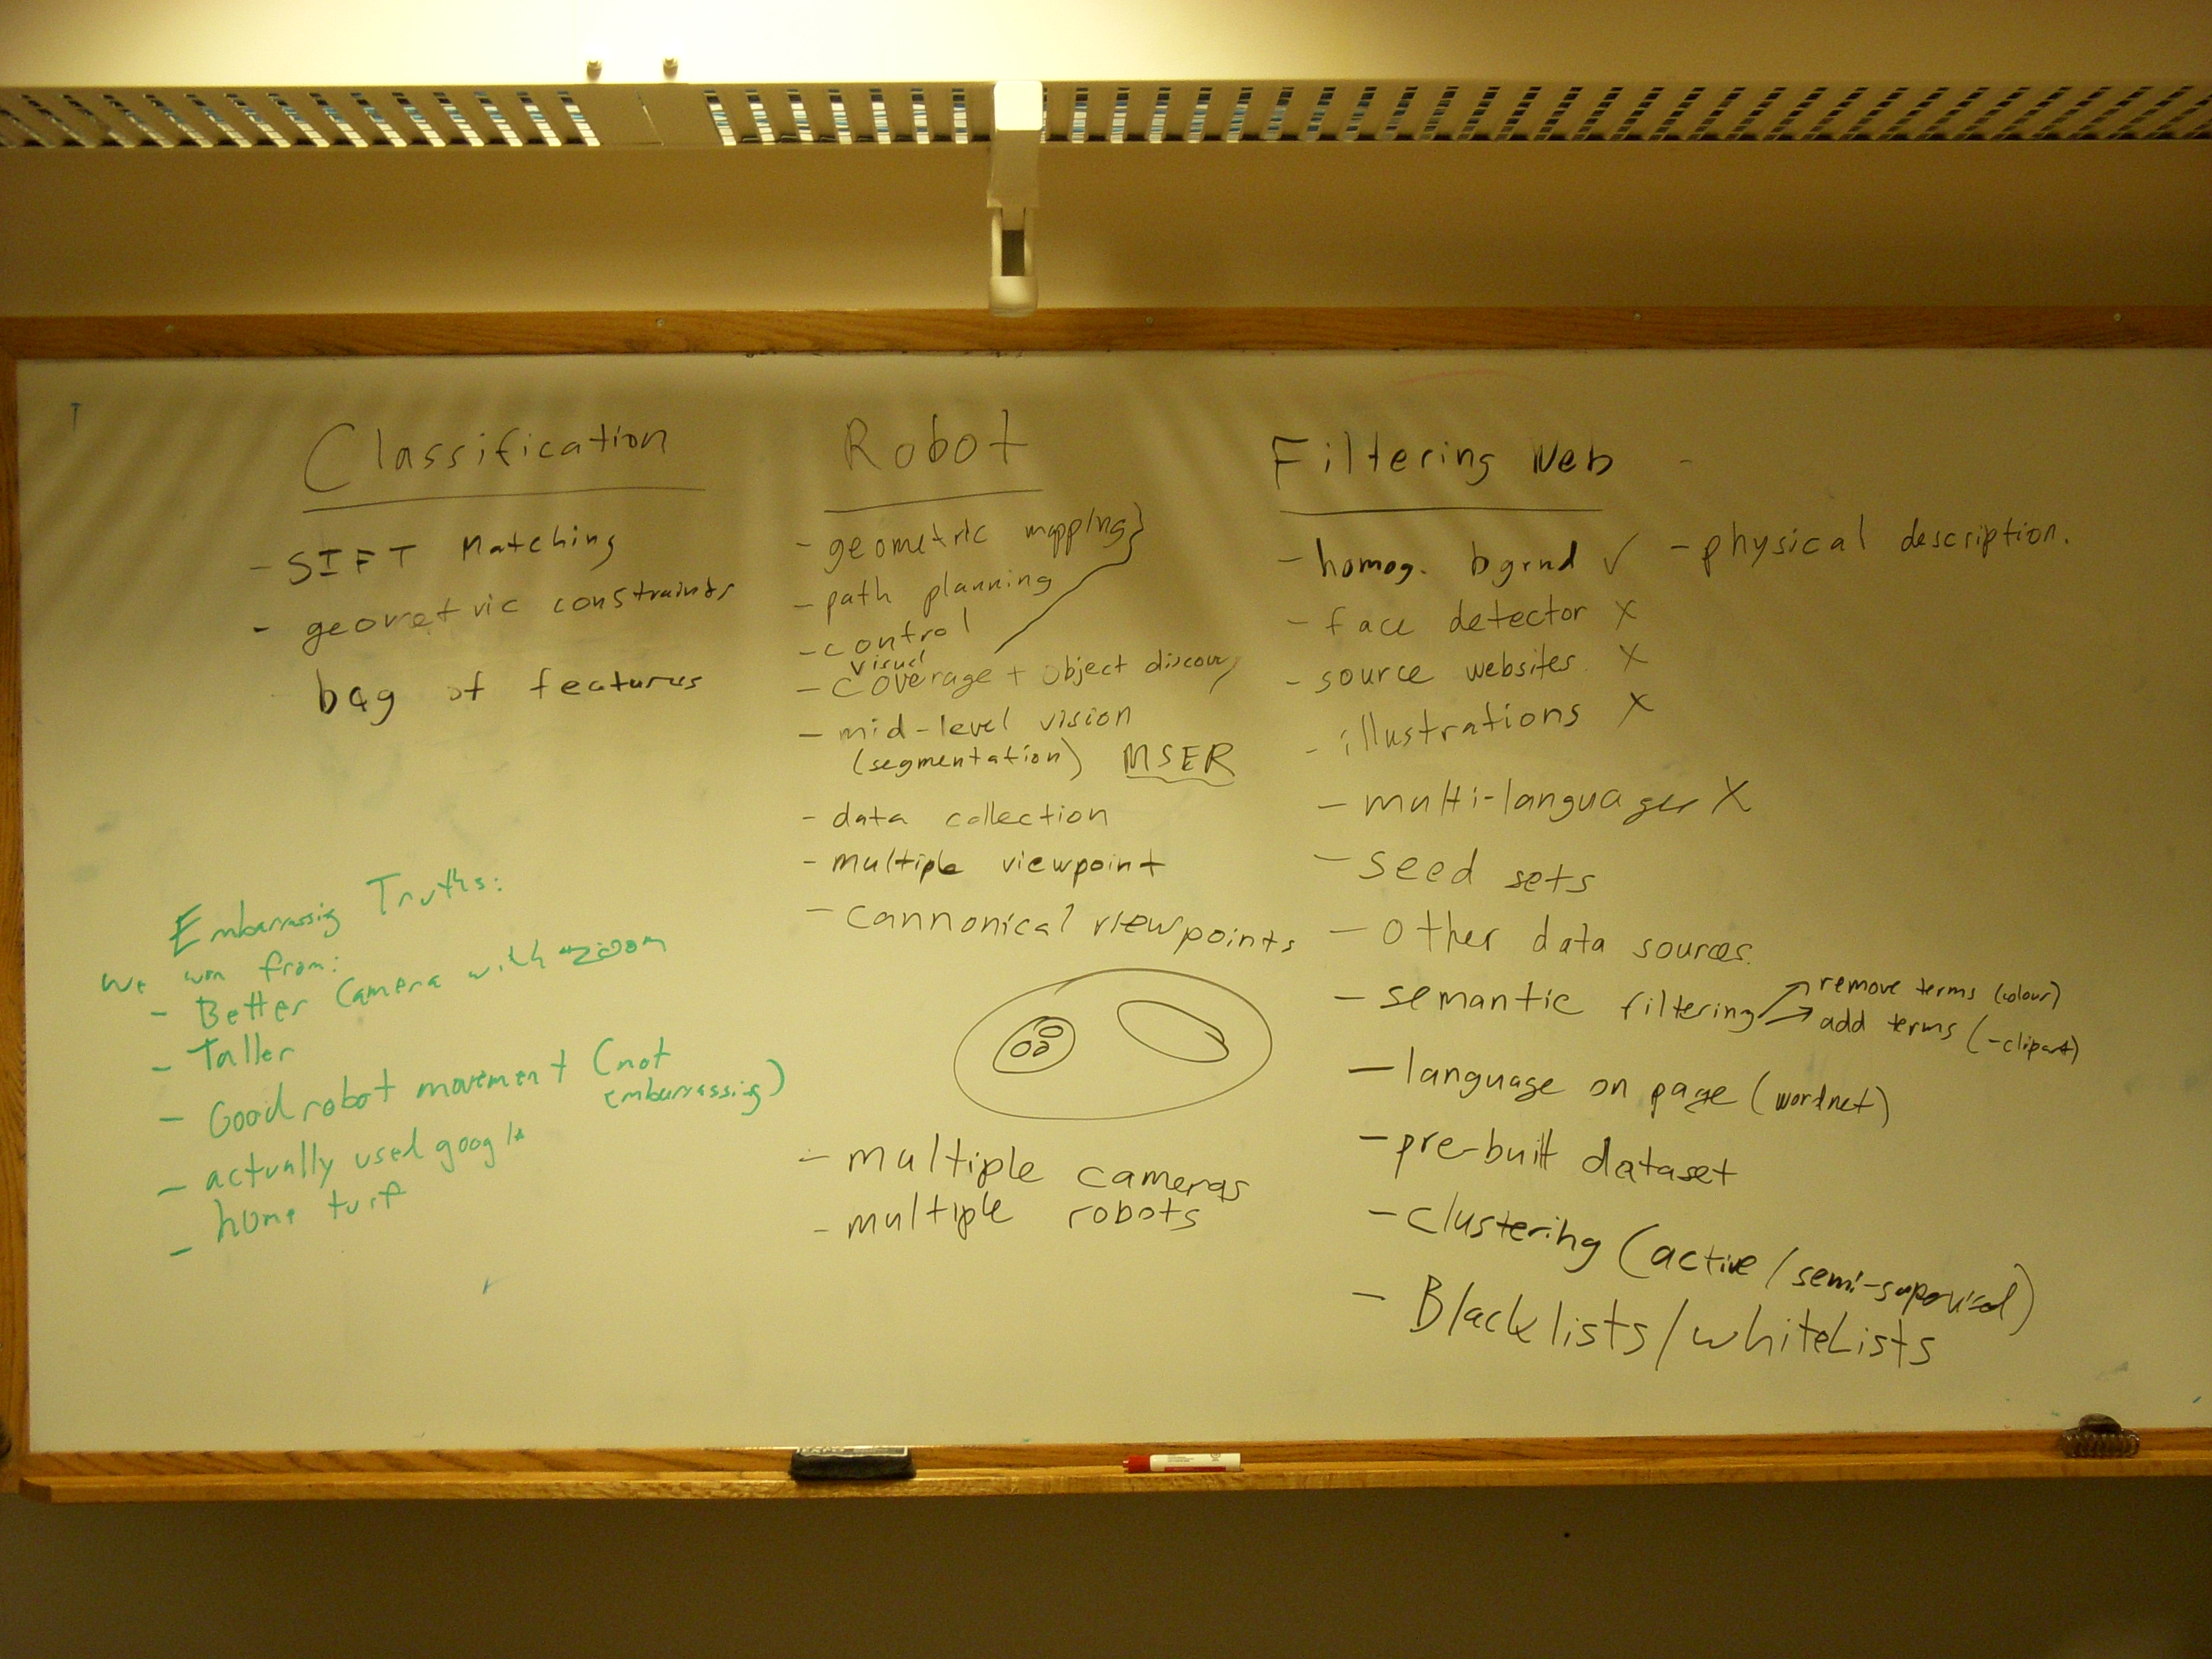 Classification
- SIFT Matching
- geometric constraints
bag of features
Embarrassig Truths:
We won from:
- Better Camera with zoom
- Taller
- Good robot movement (not
embarrassig)
- actually used google
- home turf
Robot
- geometric mapping}
- path planning
- control
visual
- coverage + object discovery
- mid-level vision
(segmentation) MSER
- data collection
- multiple viewpoint
- cannonical viewpoints
- multiple cameras
- multiple robots
Filtering Web -
- homog. bgrnd ✓ - physical description.
- face detector X
- source websites. X
- illustrations X
- multi-languages X
- seed sets
- other data sources.
- semantic filtering → remove terms (colour)
→ add terms (-clipart)
- language on page (wordnet)
- pre-built dataset
- clustering (active / semi-supervised)
- Blacklists/whiteLists